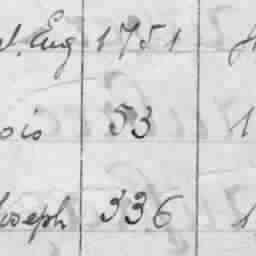 l. Eug 1751
ois 53 1
Joseph 336 1